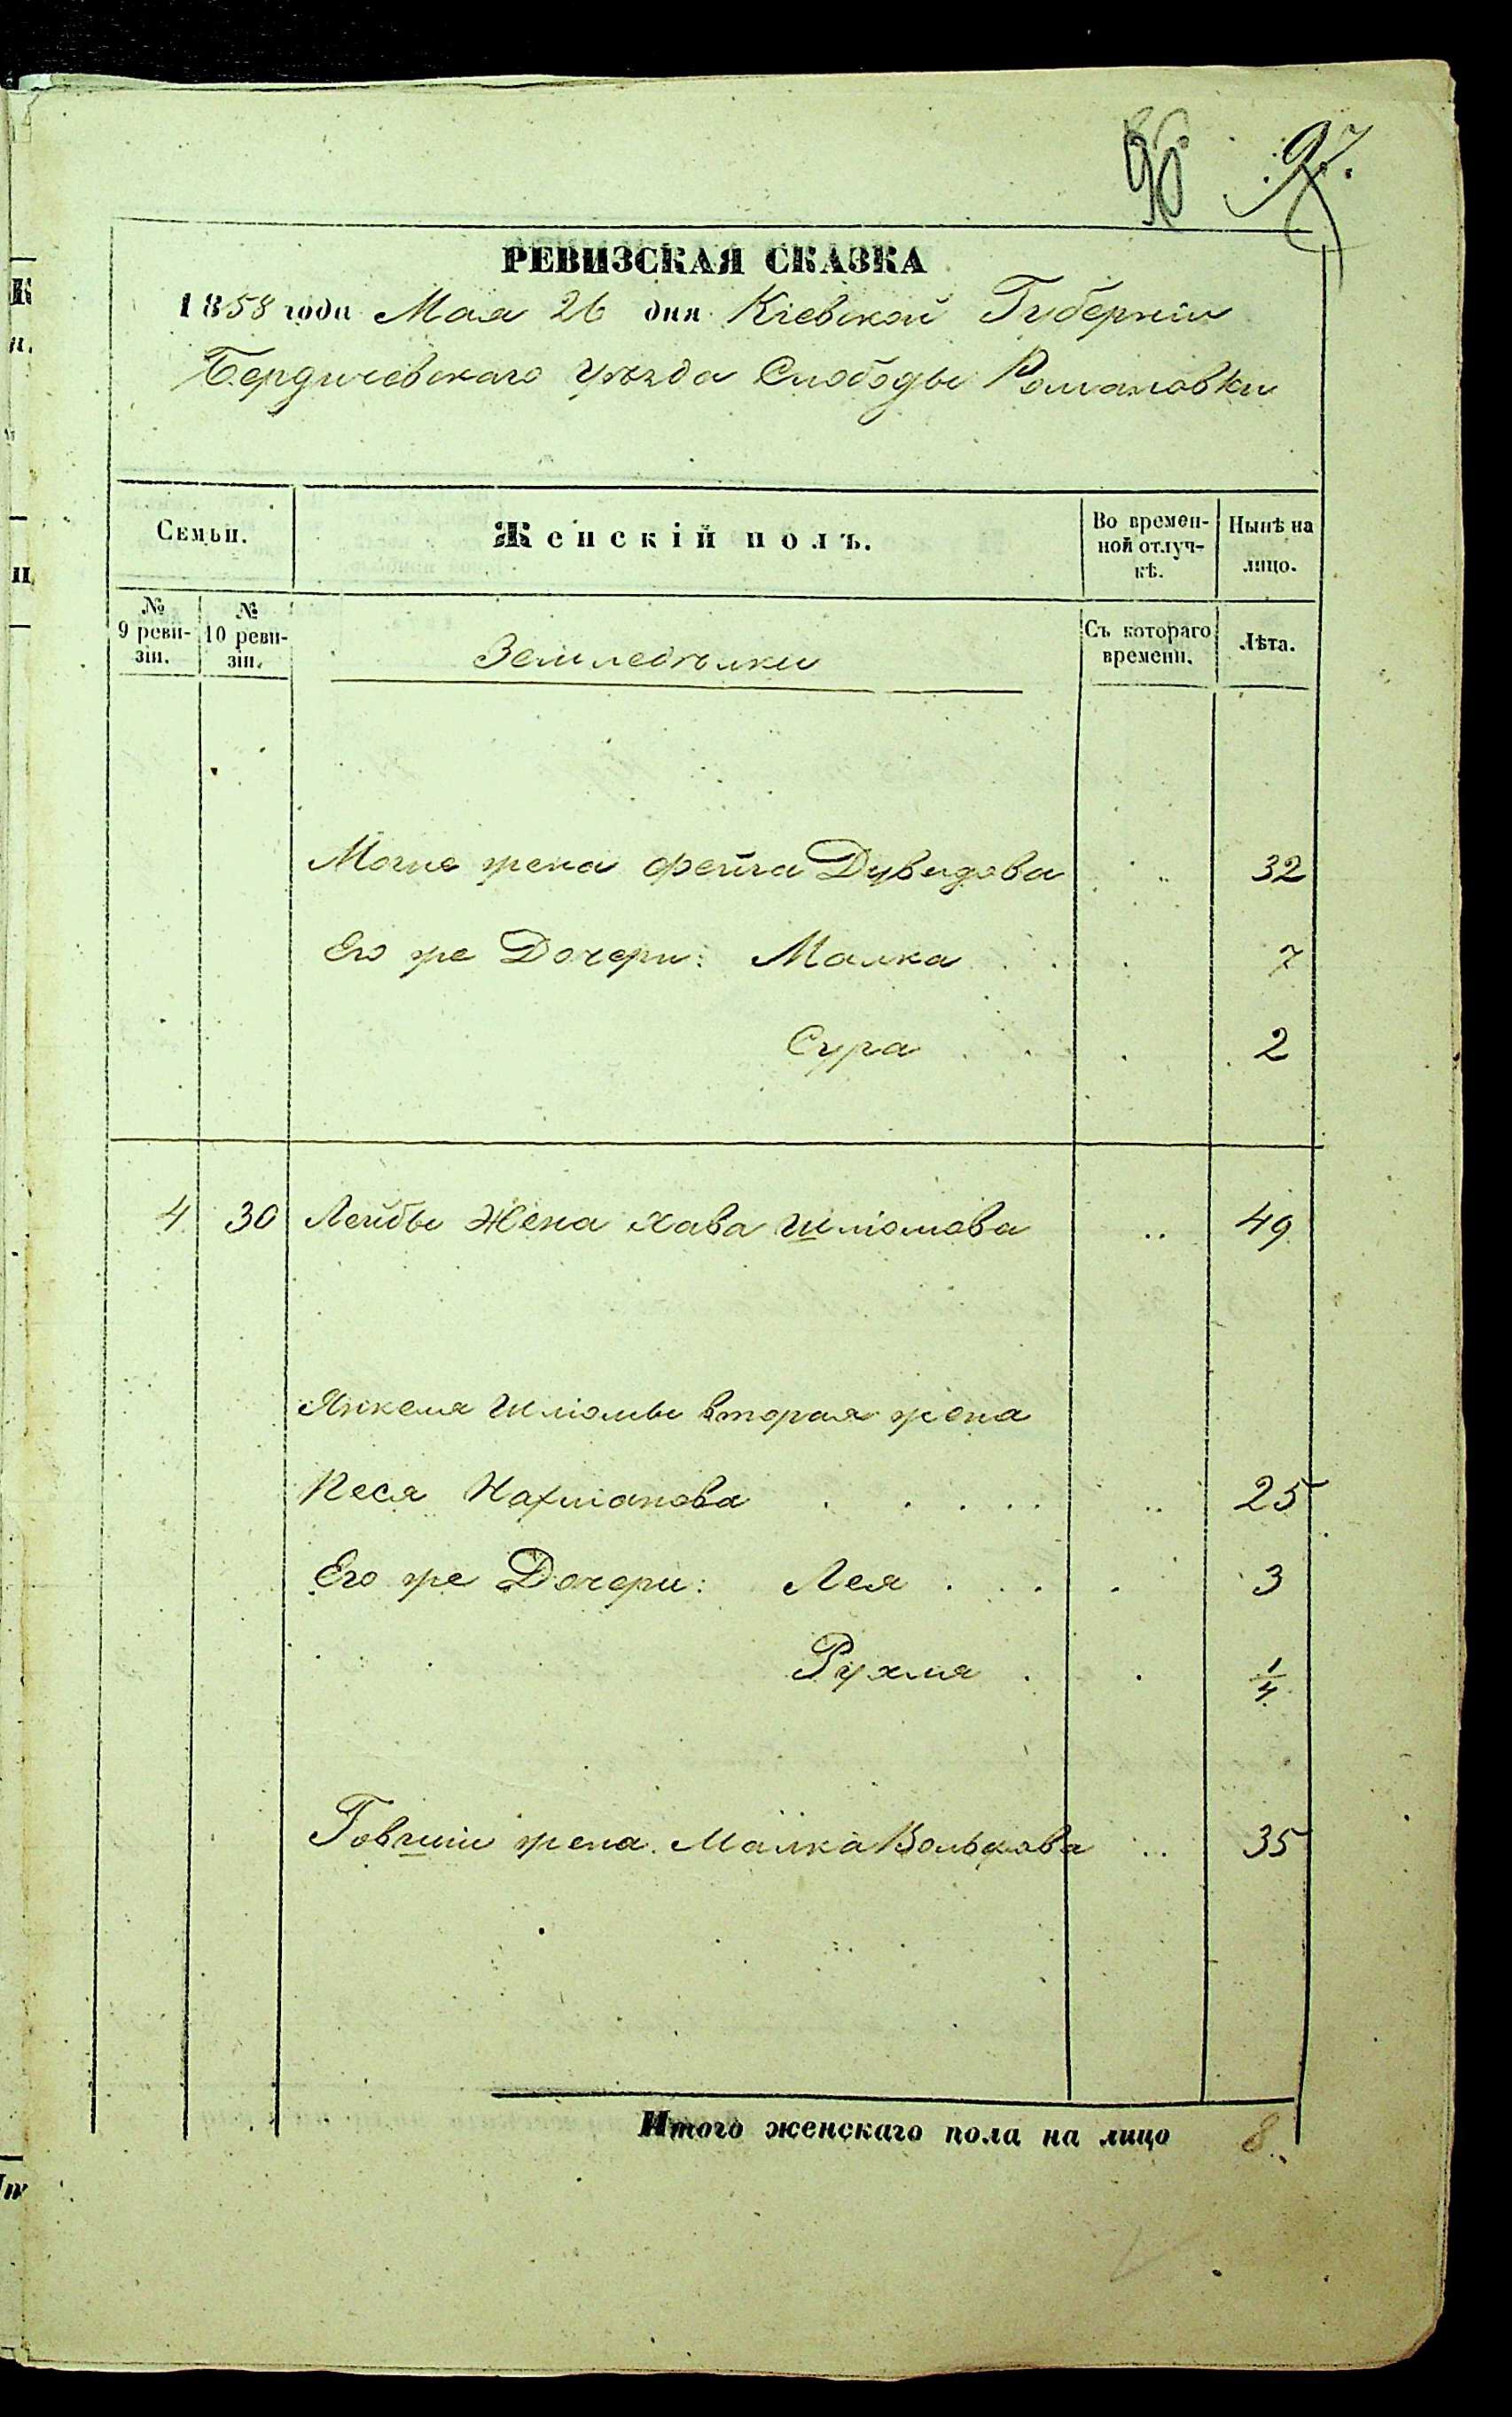 96. 97.
РЕВИЗСКАЯ СКАЗКА
1858 года Мая 26 дня Кіевской Губерніи
Бердичевскаго Уѣзда Слободы Романовки
Семьи.
Женскій полъ.
Во времен-
ной отлуч-
кѣ.
Нынѣ на
лицо.
№
9 реви-
зіи.
№
10 реви-
зіи.
Земледѣлки
Съ котораго
времени.
Лѣта.
жена Фейга Дувидова 32
Его же Дочери: Малка 7
Сура 2
4 30 Лейбы Жена Хава Шліомова 49
Янкеля Шліомы вторая жена
Песя Нахманова 25
Его же Дочери: Лея 3
Рухля 1/4
Говшіи жена Малка Вольфова 35
Итого женскаго пола на лицо 8